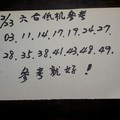 2/23 六合低机参考
03.11.14.17.19.24.27.
28.35.38.41.43.48.49.
参考就好！